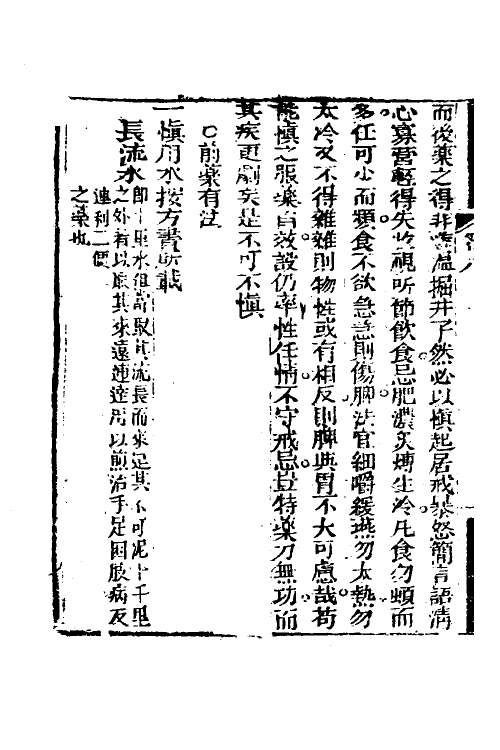 而後藥之得非渴掘井了然必以慎起居戒暴怒簡言語清
心寡營輕得失收視聽節飲食忌肥濃炙煿生冷凡食勿頻而
多任可少而頻食不欲急急則傷脾法宜細嚼緩燕勿太熱勿
太冷又不得雜雜則物性或有相反則脾與胃不大可慮哉苟
能慎之服藥自效設仍率性任情不守戒忌豈特藥力無功而
其疾更劇矣是不可不慎
○前藥有法
一慎用水按方書所載
長流水即千里水但當取其流長而來足其不可泥于千里
之外者以爲其來遠速達用以煎治手足四肢病及
速利二便
之藥也